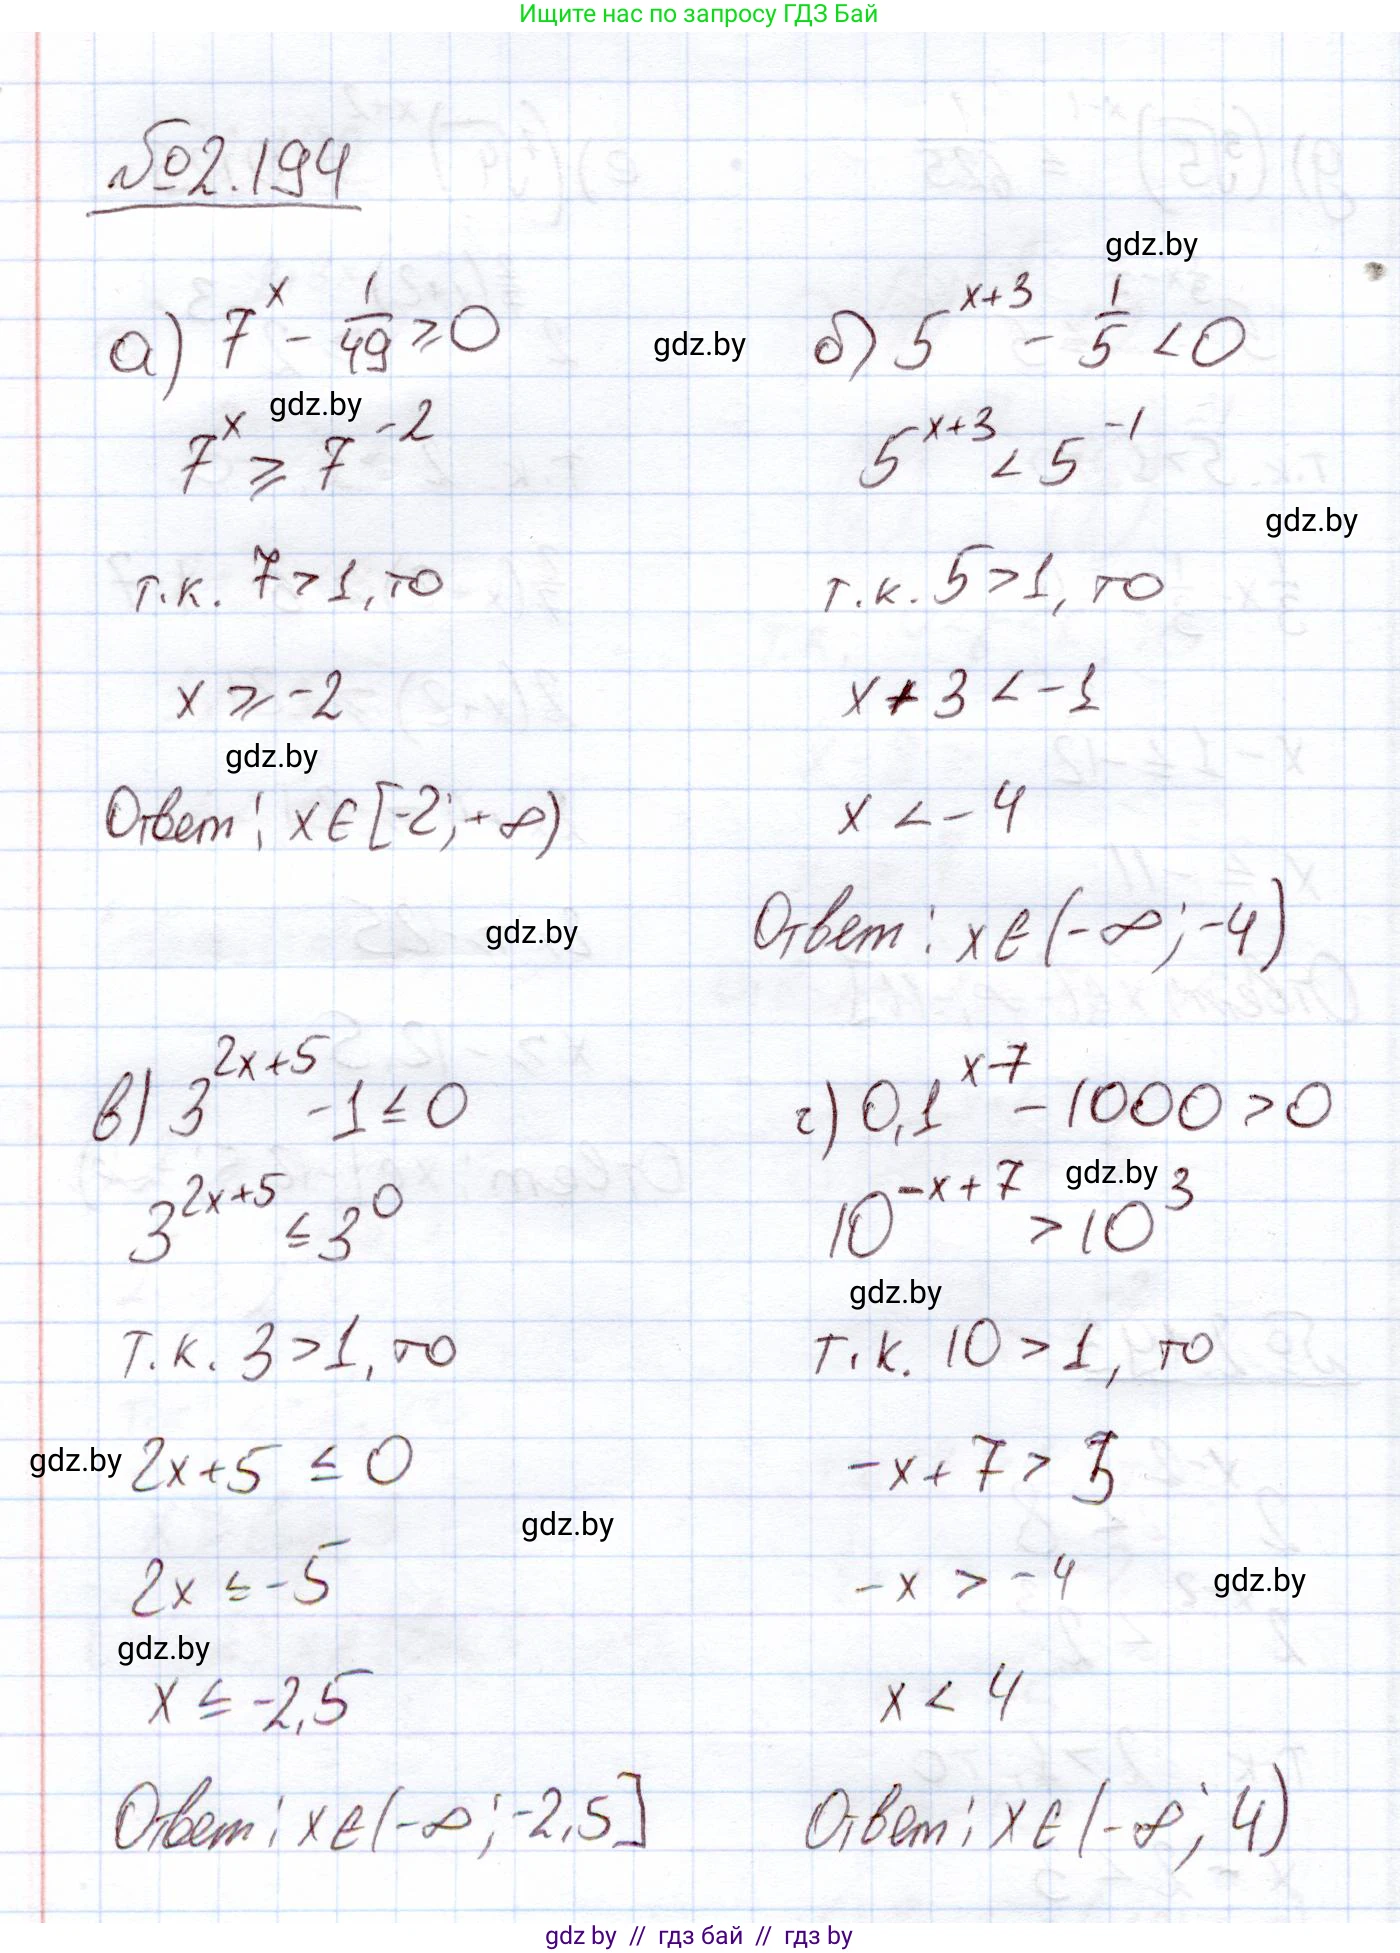 Ищите нас по запросу ГДЗ Бай
№2.194
gdz.by
а) 7^x - 1/49 ≥ 0
gdz.by
б) 5^(x+3) - 1/5 < 0
gdz.by
7^x ≥ 7^(-2)
5^(x+3) < 5^(-1)
gdz.by
т.к. 7 > 1, то
т.к. 5 > 1, то
x ≥ -2
x + 3 < -1
gdz.by
Ответ: x ∈ [-2; +∞)
x < -4
gdz.by
Ответ: x ∈ (-∞; -4)
в) 3^(2x+5) - 1 ≤ 0
г) 0,1^(x-7) - 1000 > 0
gdz.by
3^(2x+5) ≤ 3^0
10^(-x+7) > 10^3
gdz.by
т.к. 3 > 1, то
т.к. 10 > 1, то
gdz.by
2x + 5 ≤ 0
-x + 7 > 3
gdz.by
2x ≤ -5
-x > -4
gdz.by
gdz.by
x ≤ -2,5
x < 4
Ответ: x ∈ (-∞; -2,5]
Ответ: x ∈ (-∞; 4)
gdz.by // гдз бай // гдз by